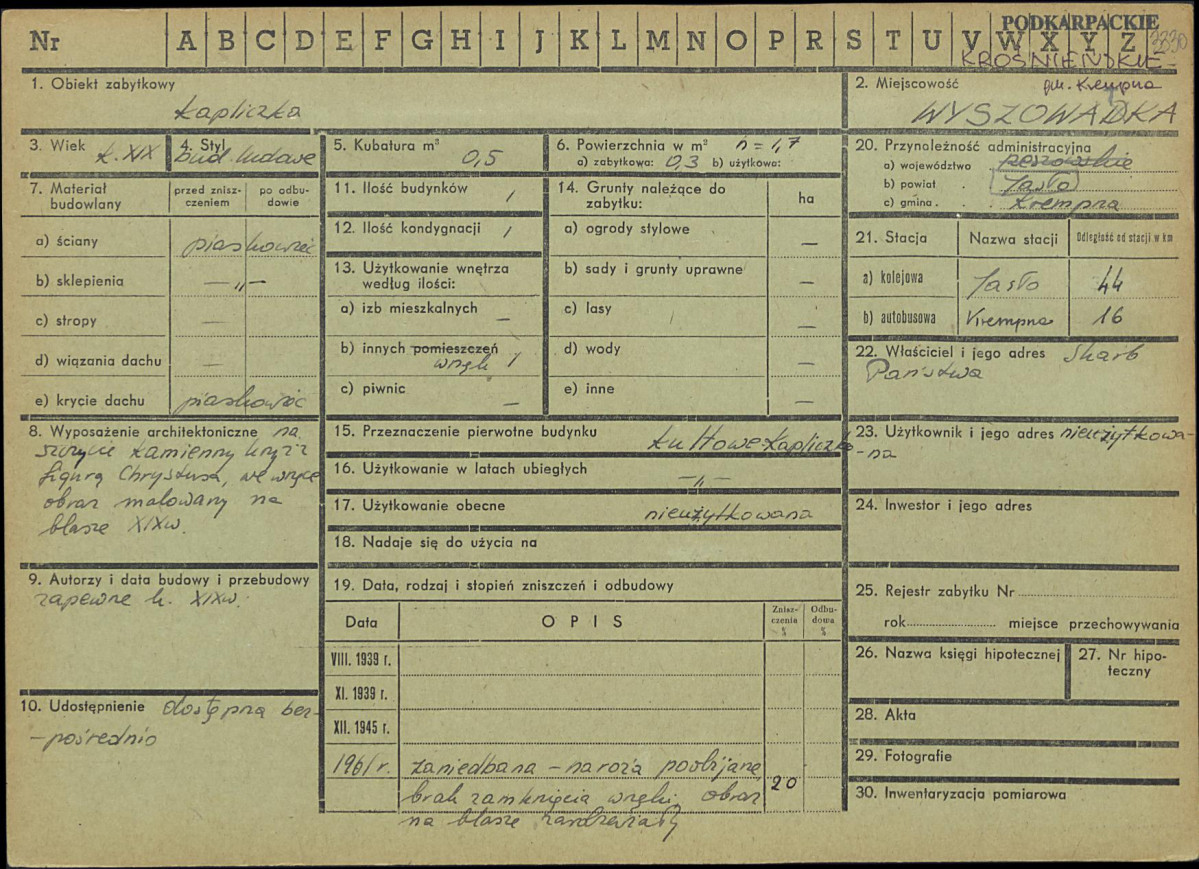 PODKARPACKIE
Nr A B C D E F G H I J K L M N O P R S T U V W X Y Z 3330
KROŚNIEŃSKIE
1. Obiekt zabytkowy
kapliczka
2. Miejscowość gm. Krempna
WYSZOWADKA
3. Wiek k. XIX
4. Styl bud. ludowe
5. Kubatura m³ 0,5
6. Powierzchnia w m² h = 1,7
a) zabytkowa: 0,3 b) użytkowa:
7. Materiał budowlany
przed zniszczeniem
po odbudowie
a) ściany piaskowiec
b) sklepienia — „ —
c) stropy —
d) wiązania dachu —
e) krycie dachu piaskowiec
8. Wyposażenie architektoniczne na
szczycie kamienny krzyż z
figurą Chrystusa, we wnęce
obraz malowany na
blasze XIXw.
9. Autorzy i data budowy i przebudowy
zapewne k. XIXw.
10. Udostępnienie dostępna bez-
-pośrednio
11. Ilość budynków 1
12. Ilość kondygnacji 1
13. Użytkowanie wnętrza
według ilości:
a) izb mieszkalnych —
b) innych pomieszczeń
wnęk 1
c) piwnic —
14. Grunty należące do
zabytku:
ha
a) ogrody stylowe —
b) sady i grunty uprawne —
c) lasy —
d) wody —
e) inne —
15. Przeznaczenie pierwotne budynku kultowe-kapliczka
16. Użytkowanie w latach ubiegłych — „ —
17. Użytkowanie obecne nieużytkowana
18. Nadaje się do użycia na
19. Data, rodzaj i stopień zniszczeń i odbudowy
Data
OPIS
Zniszczenia %
Odbudowa %
VIII. 1939 r.
XI. 1939 r.
XII. 1945 r.
1961 r. zaniedbana – naroża poobijane,
brak zamknięcia wnęki, obraz 20
na blasze zardzewiały
20. Przynależność administracyjna
a) województwo rzeszowskie
b) powiat Jasło
c) gmina Krempna
21. Stacja
Nazwa stacji
Odległość od stacji w km
a) kolejowa Jasło 44
b) autobusowa Krempna 16
22. Właściciel i jego adres Skarb
Państwa
23. Użytkownik i jego adres nieużytkowa-
-na
24. Inwestor i jego adres
25. Rejestr zabytku Nr
rok miejsce przechowywania
26. Nazwa księgi hipotecznej
27. Nr hipoteczny
28. Akta
29. Fotografie
30. Inwentaryzacja pomiarowa